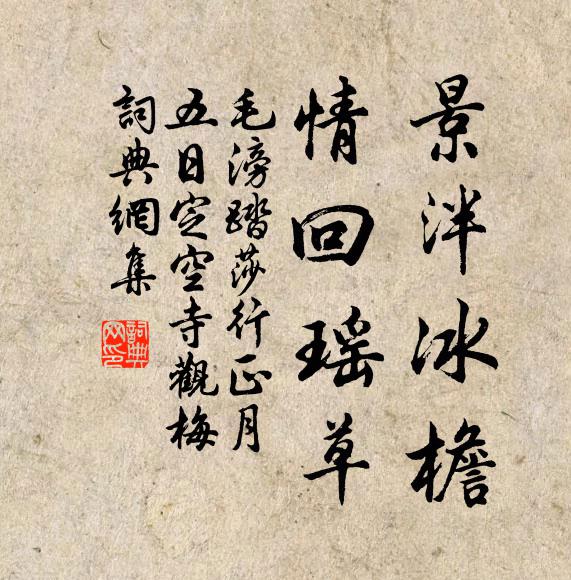 景泮冰檐
情回瑶草
毛滂踏莎行正月
五日定空寺觀梅
詞典網集
詞典
网印